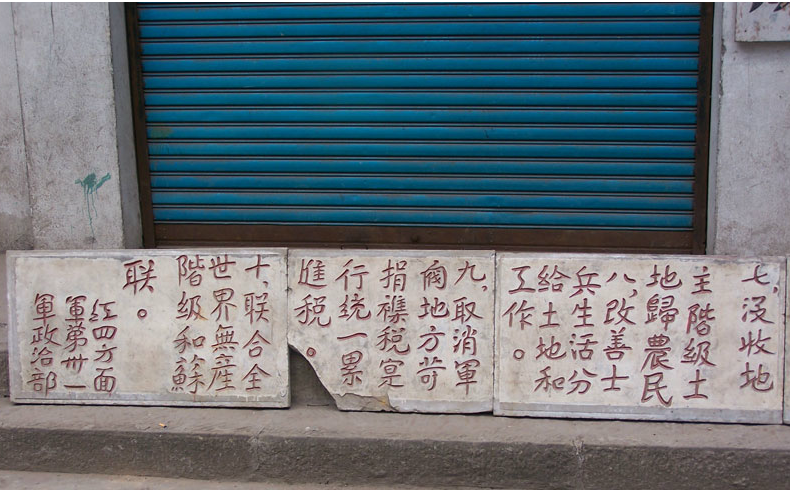 七,没收地
主階級土
地歸農民
八,改善士
兵生活分
給土地和
工作。
九,取消軍
阀地方苛
捐襍税寔
行统一累
進税。
十,联合全
世界無産
階級和蘇
联。
红四方面
軍第卅一
軍政治部